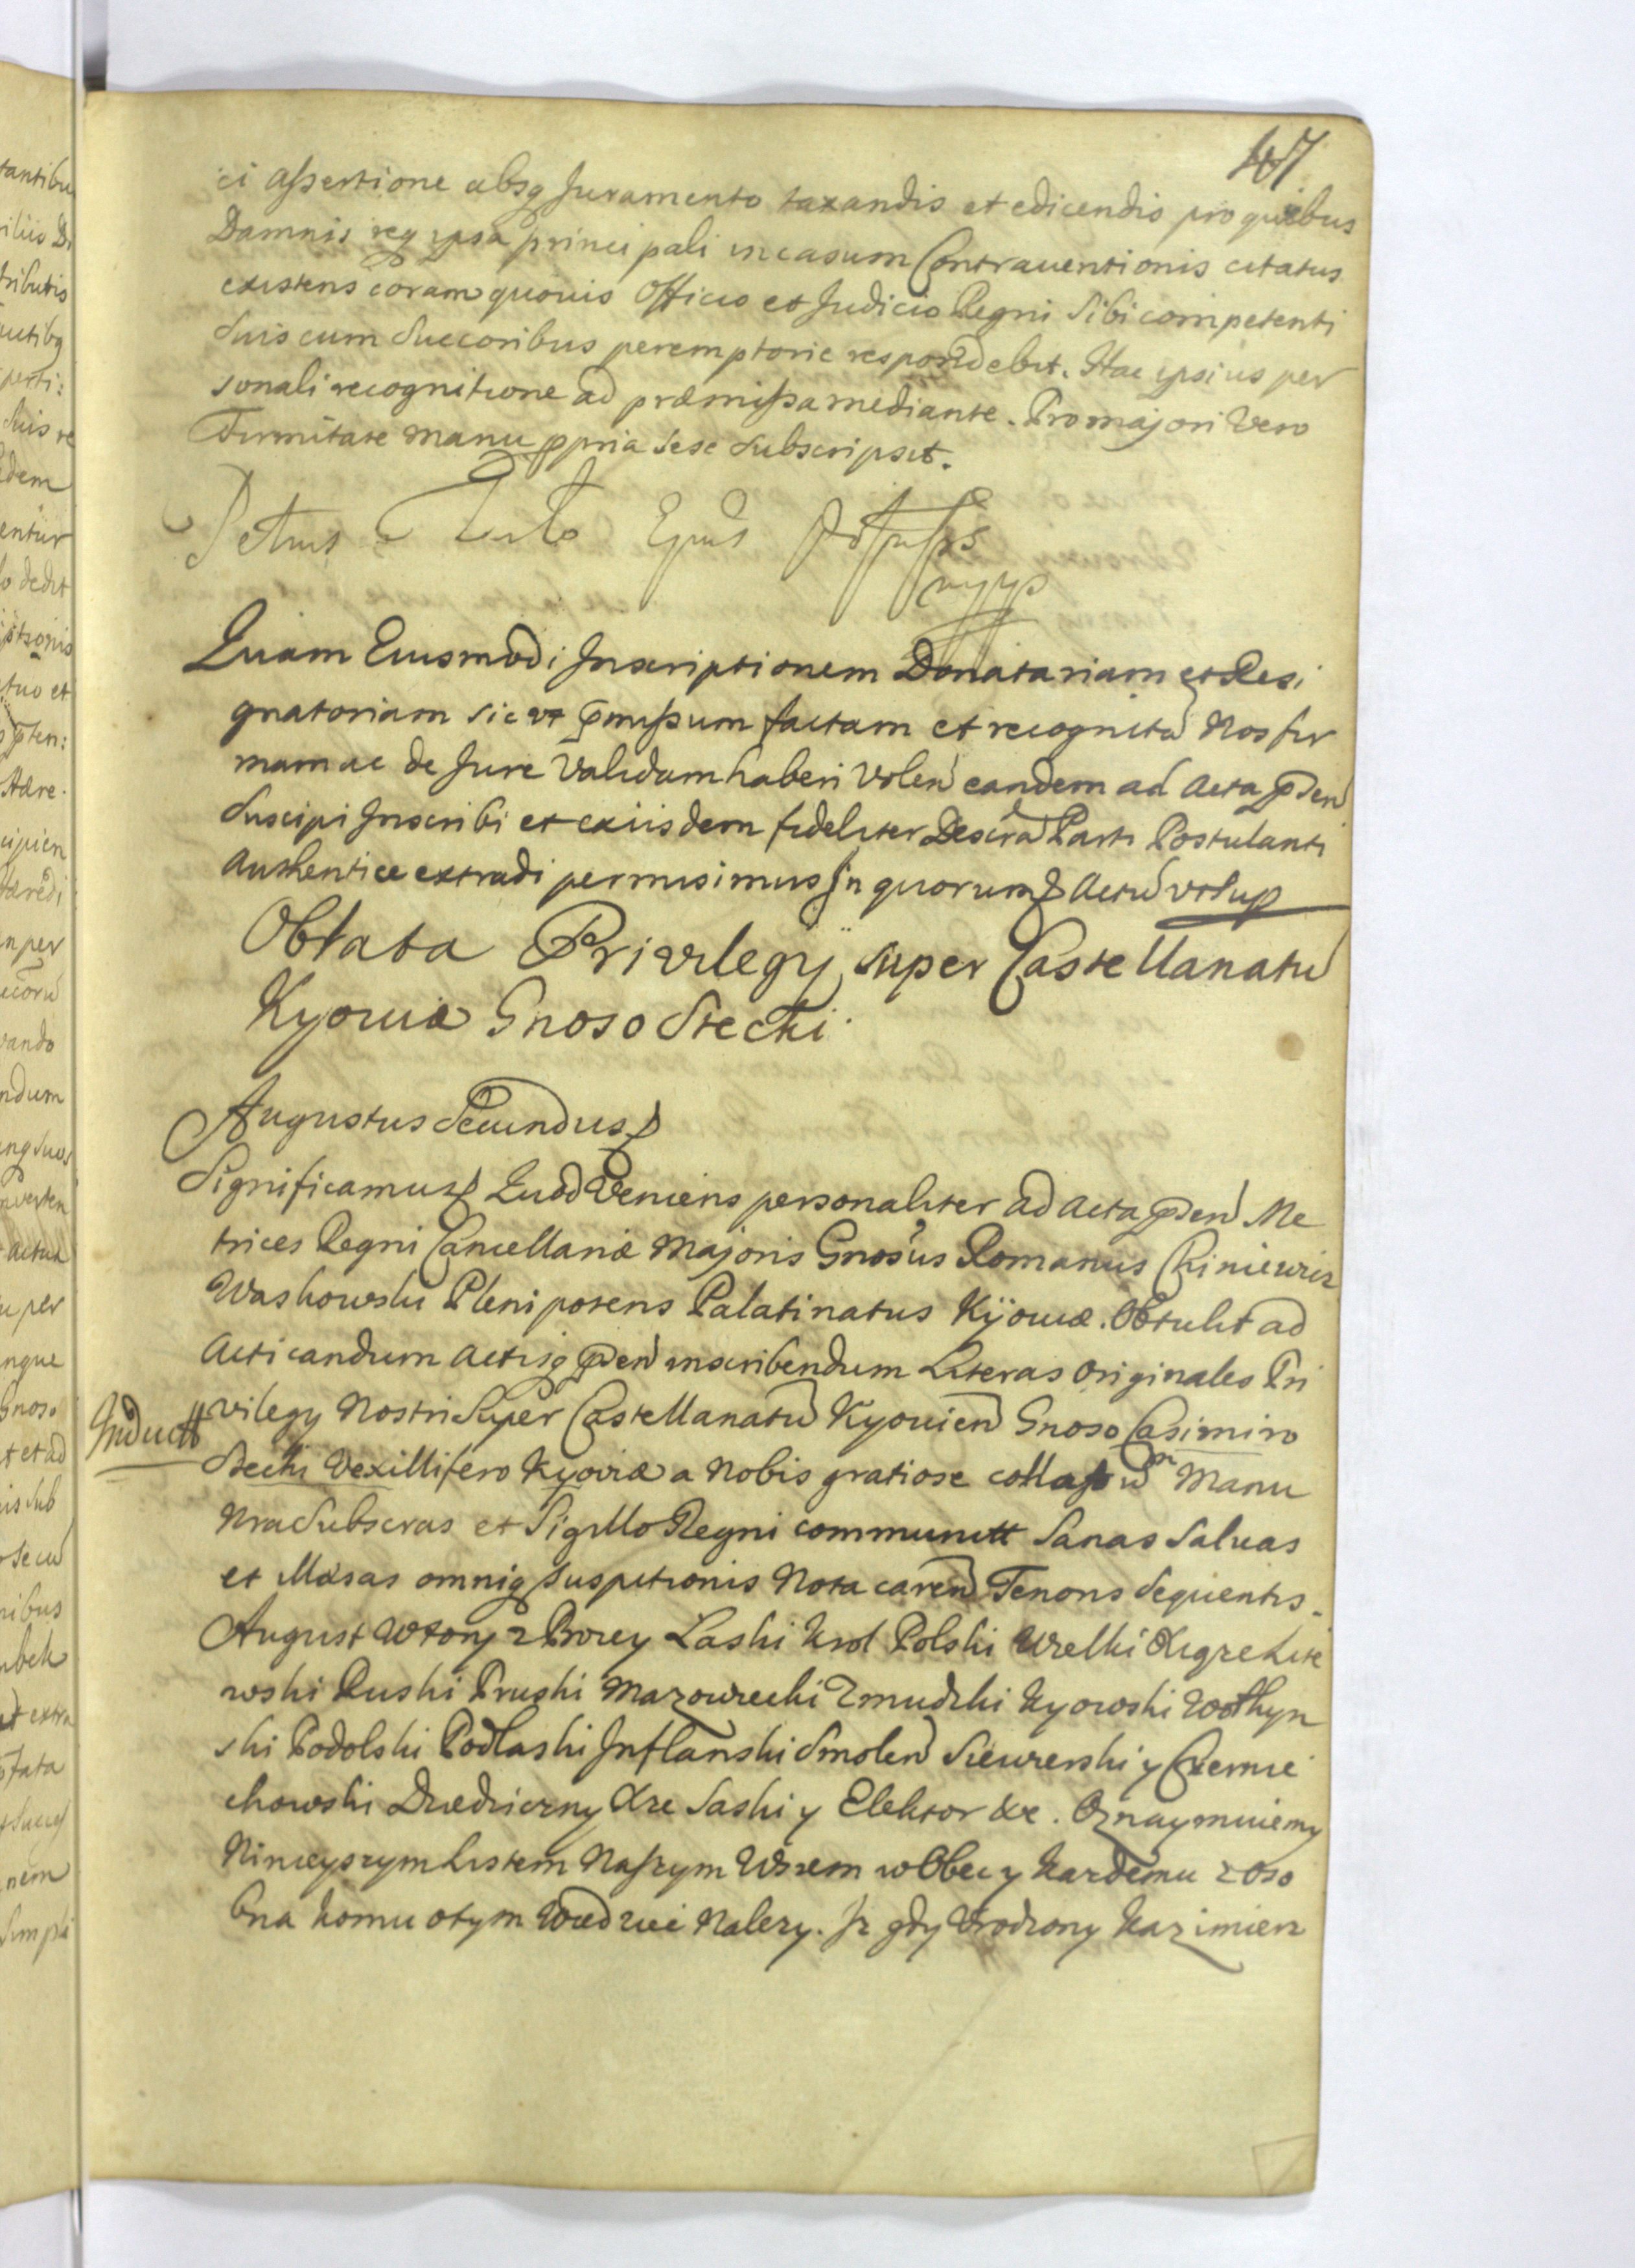 47
ci assertione absq Juramento taxandis et edicendis pro quibus
Damnis req ipsa principali in casum Contraventionis citatus
existens coram quovis Officio et Judicio Regni Sibi competenti
Suis cum Succoribus peremptorie respondebit. Hac ipsius per
sonali recognitione ad præmissa mediante. Pro majori Vero
Firmitate manu ppria sese Subscripsit.
Petrus Eppus
mpp
Quam Eiusmodi Inscriptionem Donatariam et Resi
gnatoriam sic vt pmissum factam et recognitã Nos fir
mam ac de Jure Validam haberi Volen eandem ad Acta pden
Suscipi Inscribi et exiisdem fideliter Descra Parti Postulanti
Authentice extradi permisimus In quorum Actu vt sup
Oblata Privilegÿ super Castellanatu
Kyoviæ Gnoso Stecki
Augustus Secundus
Significamus Quod Veniens personaliter ad Acta pden Me
trices Regni Cancellariæ Majoris Gnosus Romanus Chiniewicz
Waskowski Plenipotens Palatinatus Kÿoviæ. Obtulit ad
Acticandum Actisq pden inscribendum Literas Originales Pri
vilegy Nostri Super Castellanatu Kyovien Gnoso Casimiro
Induct
Stecki Vexillifero Kyoviæ a Nobis gratiose collatu Manu
Nra Subscras et Sigillo Regni communitt Sanas Salvas
et Illæsas omniq suspitionis Nota caren Tenoris Sequentis.
August Wtory z Bozey Laski Krol Polski Wielki Xiąze Lite
wski Ruski Pruski Mazowiecki Zmudzki Kyowski Wołhyn
ski Podolski Podlaski Inflanski Smolen Siewierski y Czernie
chowski Dziedziczny Xze Saski y Elektor &c. Oznaymuiemy
Ninieyszym Listem Naszym Wszem w Obec y Kazdemu z Oso
bna komu o tym Wiedziec Nalezy. Iz gdy Urodzony Kazimierz